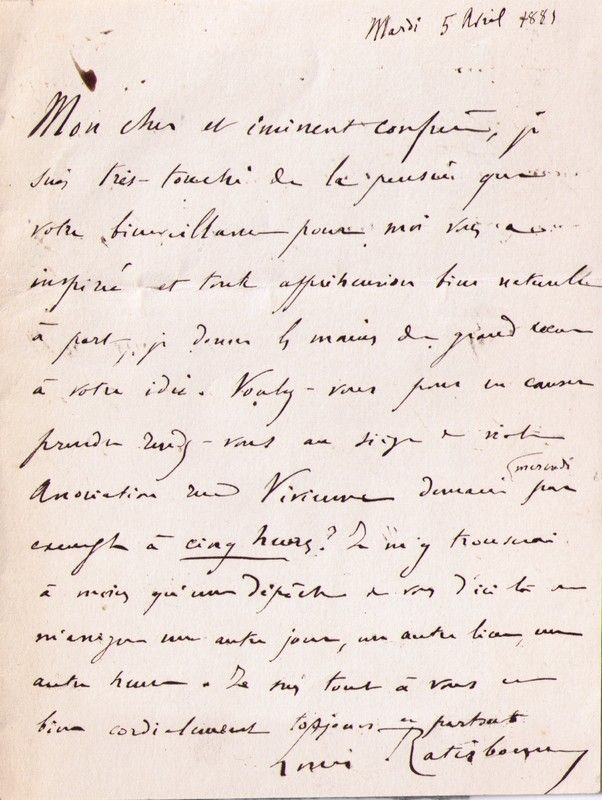 Mardi 5 Avril 1881
Mon cher et éminent confrère, je
suis très-touché de la pensée que
votre bienveillance pour moi vous a
inspiré et toute appréhension bien naturelle
à part, je donne les mains de grand cœur
à votre idée. Voulez-vous pour en causer
prendre rendez-vous au siège de notre
Association rue Vivienne demain mercredi par
exemple à cinq heures? Je m'y trouverai
à moins qu'une dépêche de vous d'ici là ne
m'assigne un autre jour, un autre lieu, une
autre heure. Je suis tout à vous
bien cordialement toujours et partout
Louis Ratisbonne